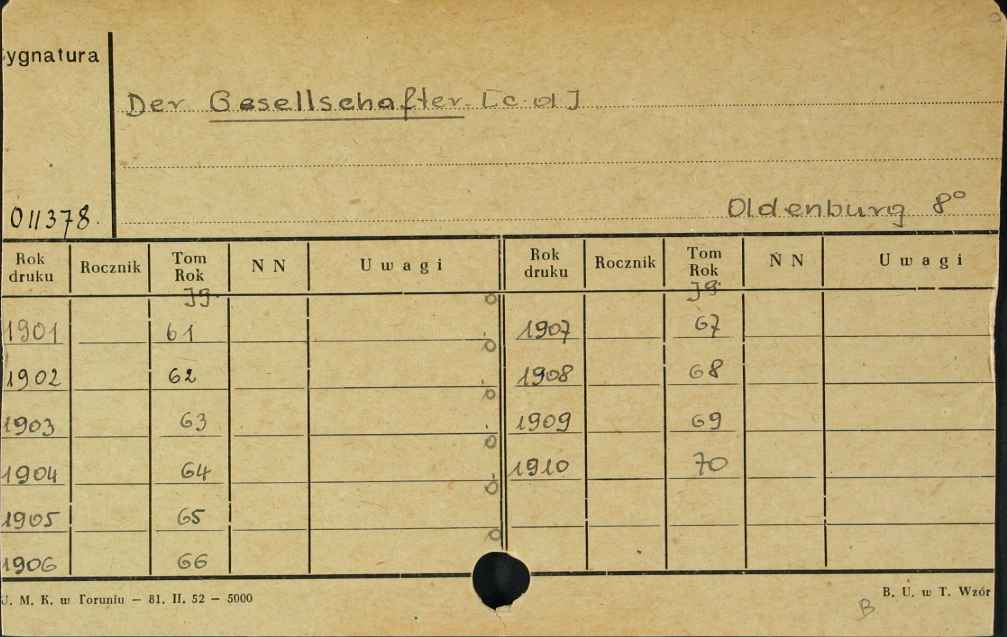 ygnatura
Der Gesellschafter. [c. d]
011378.
Oldenburg 8°
Rok druku Rocznik Tom Rok N N Uwagi Rok druku Rocznik Tom Rok N N Uwagi
Jg. Jg.
1901 61 1907 67
1902 62 1908 68
1903 63 1909 69
1904 64 1910 70
1905 65
1906 66
U. M. K. w Toruniu — 81. II. 52 — 5000
B. U. w T. Wzór
B